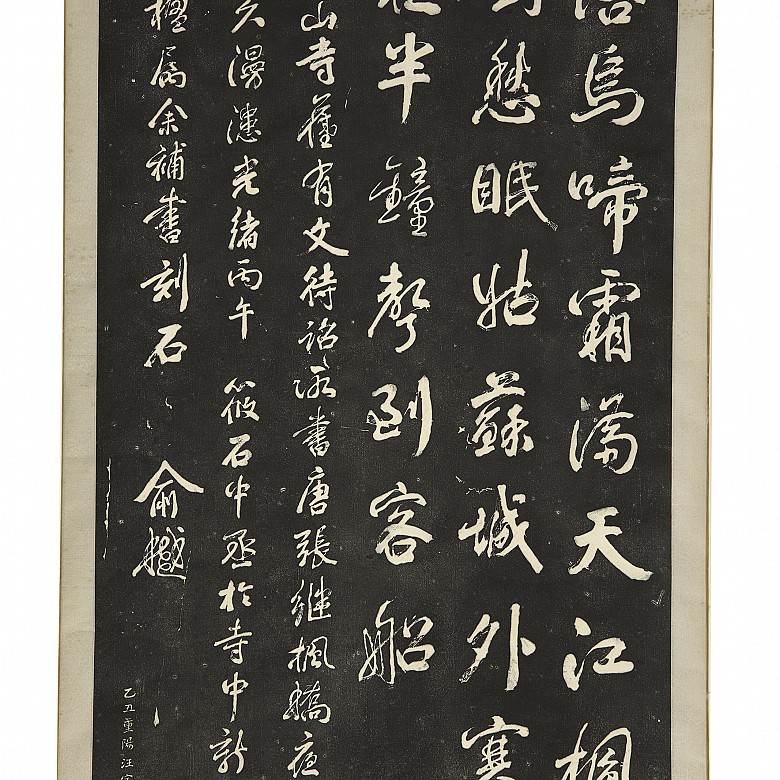 落烏啼霜滿天江楓
對愁眠姑蘇城外寒
夜半鐘聲到客船
山寺舊有文待詔所書唐張繼楓橋夜
久漫漶光緒丙午筱石中丞於寺中新
楹屬余補書刻石
俞樾
乙丑重陽汪